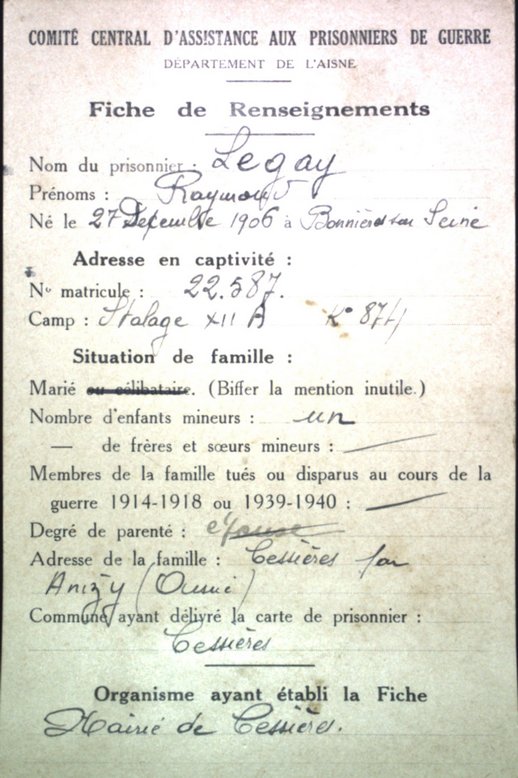 COMITÉ CENTRAL D'ASSISTANCE AUX PRISONNIERS DE GUERRE
DÉPARTEMENT DE L'AISNE
Fiche de Renseignements
Nom du prisonnier : Legay
Prénoms : Raymond
Né le 27 Décembre 1906 à Bonnières sur Seine
Adresse en captivité :
No matricule : 22.587.
Camp : Stalage XII A Ko 874
Situation de famille :
Marié ou célibataire. (Biffer la mention inutile.)
Nombre d'enfants mineurs : un
— de frères et sœurs mineurs : —
Membres de la famille tués ou disparus au cours de la
guerre 1914-1918 ou 1939-1940 : —
Degré de parenté : épouse
Adresse de la famille : Cessières par
Anizy (Aisne)
Commune ayant délivré la carte de prisonnier :
Cessières
Organisme ayant établi la Fiche
Mairie de Cessières.